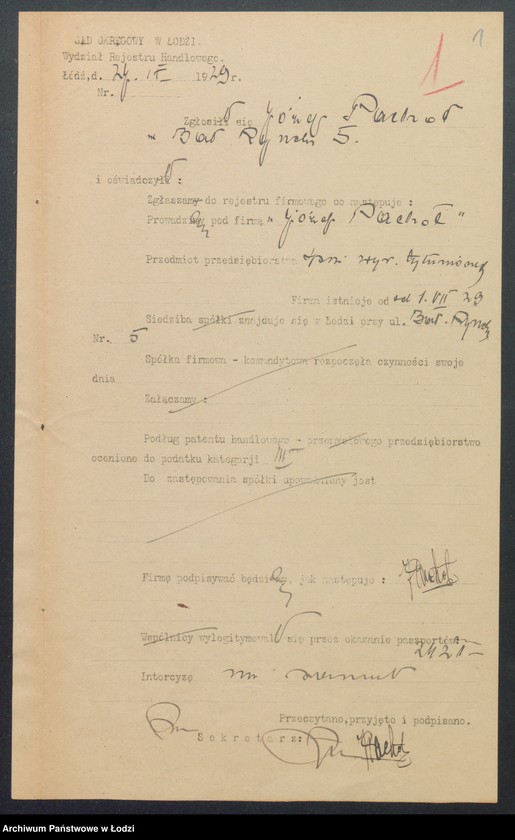 SĄD OKRĘGOWY W ŁODZI.
Wydział Rejestru Handlowego.
Łódź,d. IX 1929r.
Nr.
1
1
Zgłosił się Józef Pachoł
Bał. Rynek 5.
i oświadczył :
Zgłaszamy do rejestru firmowego co następuje :
Prowadzimy pod firmą "Józef Pachoł"
Przedmiot przedsiębiorstwa wyr. tytoniowych
Firma istnieje od od 1. VII 29
Siedziba spółki znajduje się w Łodzi przy ul. Bał. Rynek
Nr. 5
Spółka firmowa - komandytowa rozpoczęła czynności swoje
dnia
Załączamy :
Podług patentu handlowego - przemysłowego przedsiębiorstwo
ocenione do podatku kategorji III
Do zastępowania spółki upoważniony jest
Firmę podpisywać będziemy, jak następuje : JPachoł
Wspólnicy wylegitymował się przez okazanie paszportów
Intercyzę nie
Przeczytano,przyjęto i podpisano.
Sekretarz: JPachoł
Archiwum Państwowe w Łodzi